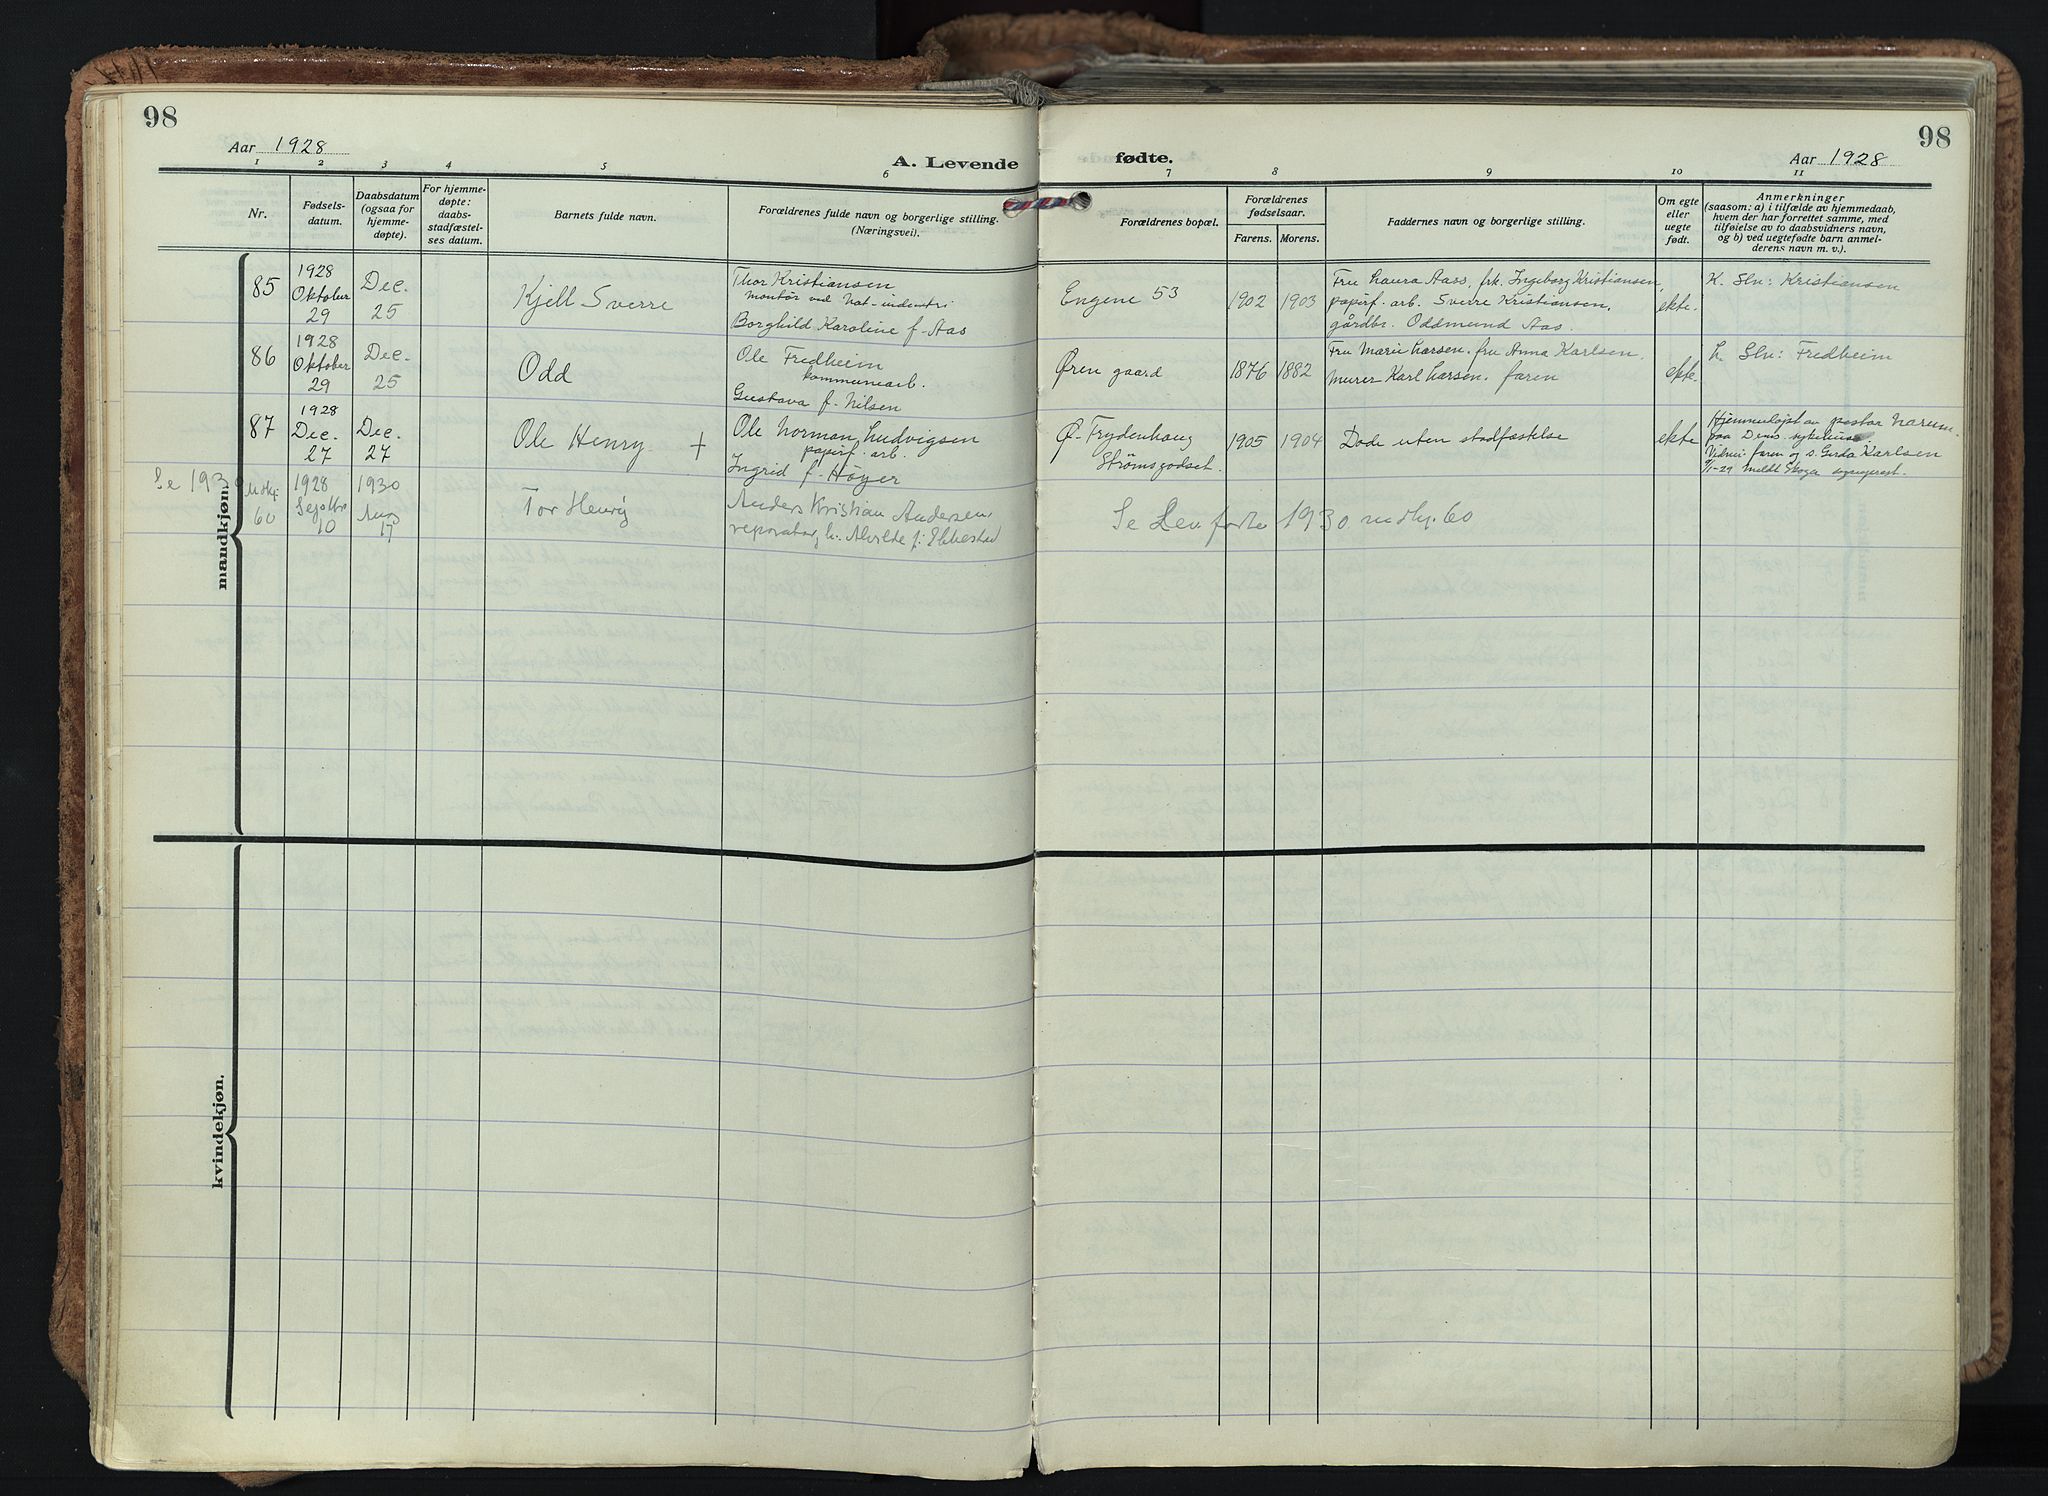 98
Aar 1928
A. Levende
1 2 3 4 5 6
Nr.
Fødsels-
datum.
Daabsdatum
(ogsaa for
hjemme-
døpte).
For hjemme-
døpte:
daabs-
stadfæstel-
ses datum.
Barnets fulde navn.
Forældrenes fulde navn og borgerlige stilling.
(Næringsvei).
mandkjøn.
85
1928
Oktober
29
Dec.
25
Kjell Sverre
Thor Kristiansen
montør ved Nat-industri
Borghild Karoline f. Aas
86
1928
Oktober
29
Dec.
25
Odd
Ole Fredheim
kommunearb.
Gustava f. Nilsen
87
1928
Dec.
27
Dec.
27
Ole Henry +
Ole Norman Ludvigsen
papirf. arb.
Ingrid f. Høyer
Se 1930
60
1928
Septbr
10
1930
Aug
17
Tor Henry
Anders Kristian Andersen,
reparatør, h. Alvilde f: Ekkestad
kvindekjøn.
fødte.
98
Aar 1928
7 8 9 10 11
Forældrenes bopæl.
Forældrenes
fødselsaar.
Farens. Morens.
Faddernes navn og borgerlige stilling.
Om egte
eller
uegte
født.
Anmerkninger
(saasom: a) i tilfælde av hjemmedaab,
hvem der har forrettet samme, med
tilføielse av to daabsvidners navn,
og b) ved uegtefødte barn anmel-
derens navn m. v.).
Engene 53
1902 1903
Fru Laura Aass, frk. Ingeborg Kristiansen,
papirf. arb. Sverre Kristiansen,
gårdbr. Oddmund Aas.
ekte.
K. Sln: Kristiansen
Øren gaard
1876 1882
Fru Marie Larsen. fru Anna Karlsen.
murer Karl Larsen. faren
ekte.
L. Sln: Fredheim
Ø. Frydenhaug
Strømsgodset.
1905 1904
Døde uten stadfæstelse
ekte
Hjemmedøpt av pastor Narum
paa Drms. sykehus.
Vidner: faren og s. Gerda Karlsen
9/1-29 meldt Skoger sogneprest.
Se Lev. fødte 1930 mdkj. 60